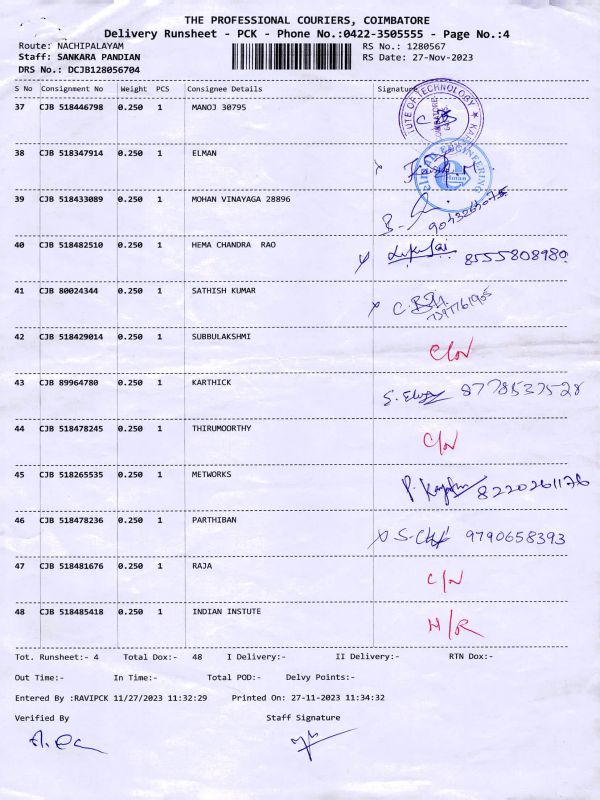 THE PROFESSIONAL COURIERS, COIMBATORE
Delivery Runsheet - PCK - Phone No.:0422-3505555 - Page No.:4
Route: NACHIPALAYAM RS No.: 1280567
Staff: SANKARA PANDIAN RS Date: 27-Nov-2023
DRS No.: DCJB128056704
S No Consignment No Weight PCS Consignee Details Signature
37 CJB 518446798 0.250 1 MANOJ 30795
UTE OF TECHNOLOGY
38 CJB 518347914 0.250 1 ELMAN
elman ENGINEERING
39 CJB 518433089 0.250 1 MOHAN VINAYAGA 28896
40 CJB 518482510 0.250 1 HEMA CHANDRA RAO 8555808980
41 CJB 80024344 0.250 1 SATHISH KUMAR
42 CJB 518429014 0.250 1 SUBBULAKSHMI C/N
43 CJB 89964780 0.250 1 KARTHICK 8778537528
44 CJB 518478245 0.250 1 THIRUMOORTHY C/N
45 CJB 518265535 0.250 1 METWORKS 8220261176
46 CJB 518478236 0.250 1 PARTHIBAN 9790658393
47 CJB 518481676 0.250 1 RAJA C/N
48 CJB 518485418 0.250 1 INDIAN INSTUTE N/R
Tot. Runsheet:- 4 Total Dox:- 48 I Delivery:- II Delivery:- RTN Dox:-
Out Time:- In Time:- Total POD:- Delvy Points:-
Entered By :RAVIPCK 11/27/2023 11:32:29 Printed On: 27-11-2023 11:34:32
Verified By Staff Signature